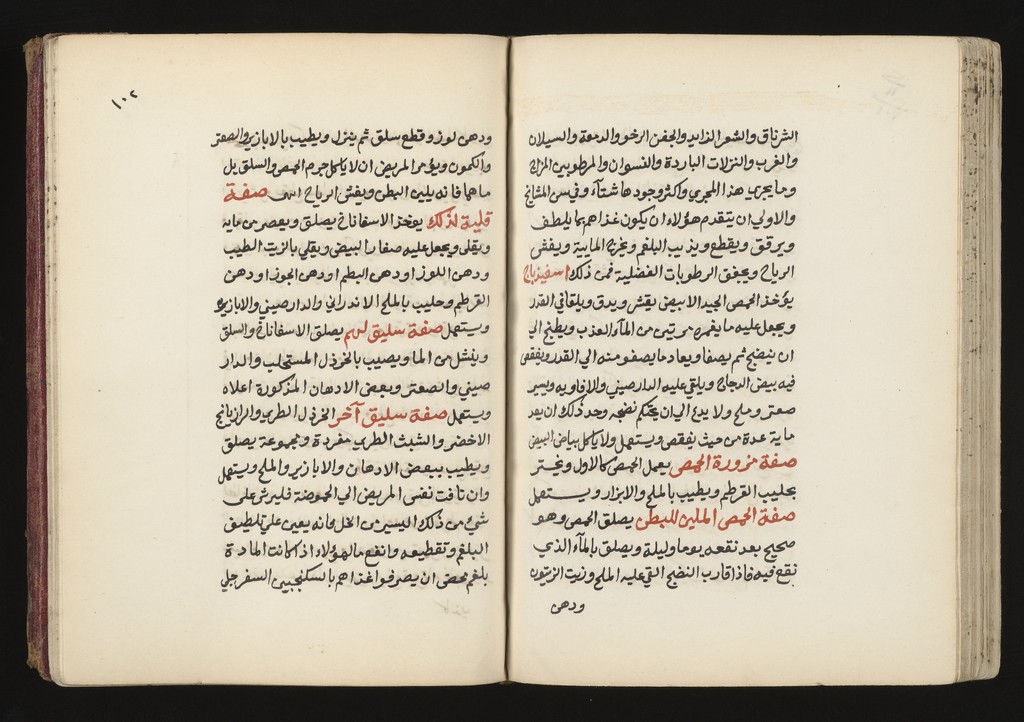 الشرناق والشعر الزايد والجفن الرخو والدمعة والسيلان
والغرب والنزلات الباردة والنسوان والمرطوبين المزاج
وما يجري هذا المجري واكثر وجود هاشتآء وفي سن المشايخ
والاولي ان يتقدم هؤلاء ان يكون غذاهم بما يلطف
ويرقق ويقطع ويذيب البلغم ويخرج المايية ويفش
الرياح ويجفف الرطوبات الفضلية فمن ذلك اسفيذباج
يؤخذ الحمص الجيد الابيض يقشر ويدق ويلقا في القدر
ويجعل عليه ما يغمره مرتين من المآء العذب ويطبخ الي
ان ينضج ثم يصفا ويعاد ما يصفو منه الي القدر ويفقص
فيه بيض الدجاج ويلقي عليه الدارصيني والافاويه ويسير
صعتر وملح ولا يدع الي ان يحتكم نضجه وحد ذلك ان يعد
ماية عدة من حيث يفقص ويستعمل ولا ياكل بياض البيض
صفة مزورة الحمص يعمل الحمص كالاول ويخثر
بحليب القرطم ويطيب بالملح والابزار ويستعمل
صفة الحمص الملين للبطن يصلق الحمص وهو
صحيح بعد نقعه يوما وليلة ويصلق بالمآء الذي
نقع فيه فاذا قارب النضج القي عليه الملح وزيت الزيتون
ودهن
١٠٢
ودهن لوز وقطع سلق ثم ينزل ويطيب بالابازير والصعتر
والكمون ويؤمر المريض ان لا ياكل جرم الحمص والسلق بل
ماهما فانه يلين البطن ويفش الرياح صفة
قلية لذلك يؤخذ الاسفاناخ يصلق ويعصر من مايه
ويقلي ويجعل عليه صفار البيض ويقلي بالزيت الطيب
ودهن اللوز او دهن البطم او دهن الجوز او دهن
القرطم وحليب بالملح الاندراني والدارصيني والابازير
ويستعمل صفة سليق لهم يصلق الاسفاناخ والسلق
وينشل من الما ويصيب بالخردل المستحلب والدار
صيني والصعتر وبعض الادهان المذكورة اعلاه
ويستعمل صفة سليق آخر الخردل الطري والرازيانج
الاخضر والشبث الطري مفردة ومجموعة يصلق
ويطيب ببعض الادهان والابازير والملح ويستعمل
وان تاقت نفس المريض الي الحموضة فليرش علي
شيء من ذلك اليسير من الخل فانه يعين علي تلطيف
البلغم وتقطيعه وانفع ما لهؤلاء اذا كانت المادة
بلغم محض ان يصرفوا غذاهم بالسكنجبين السفرجلي